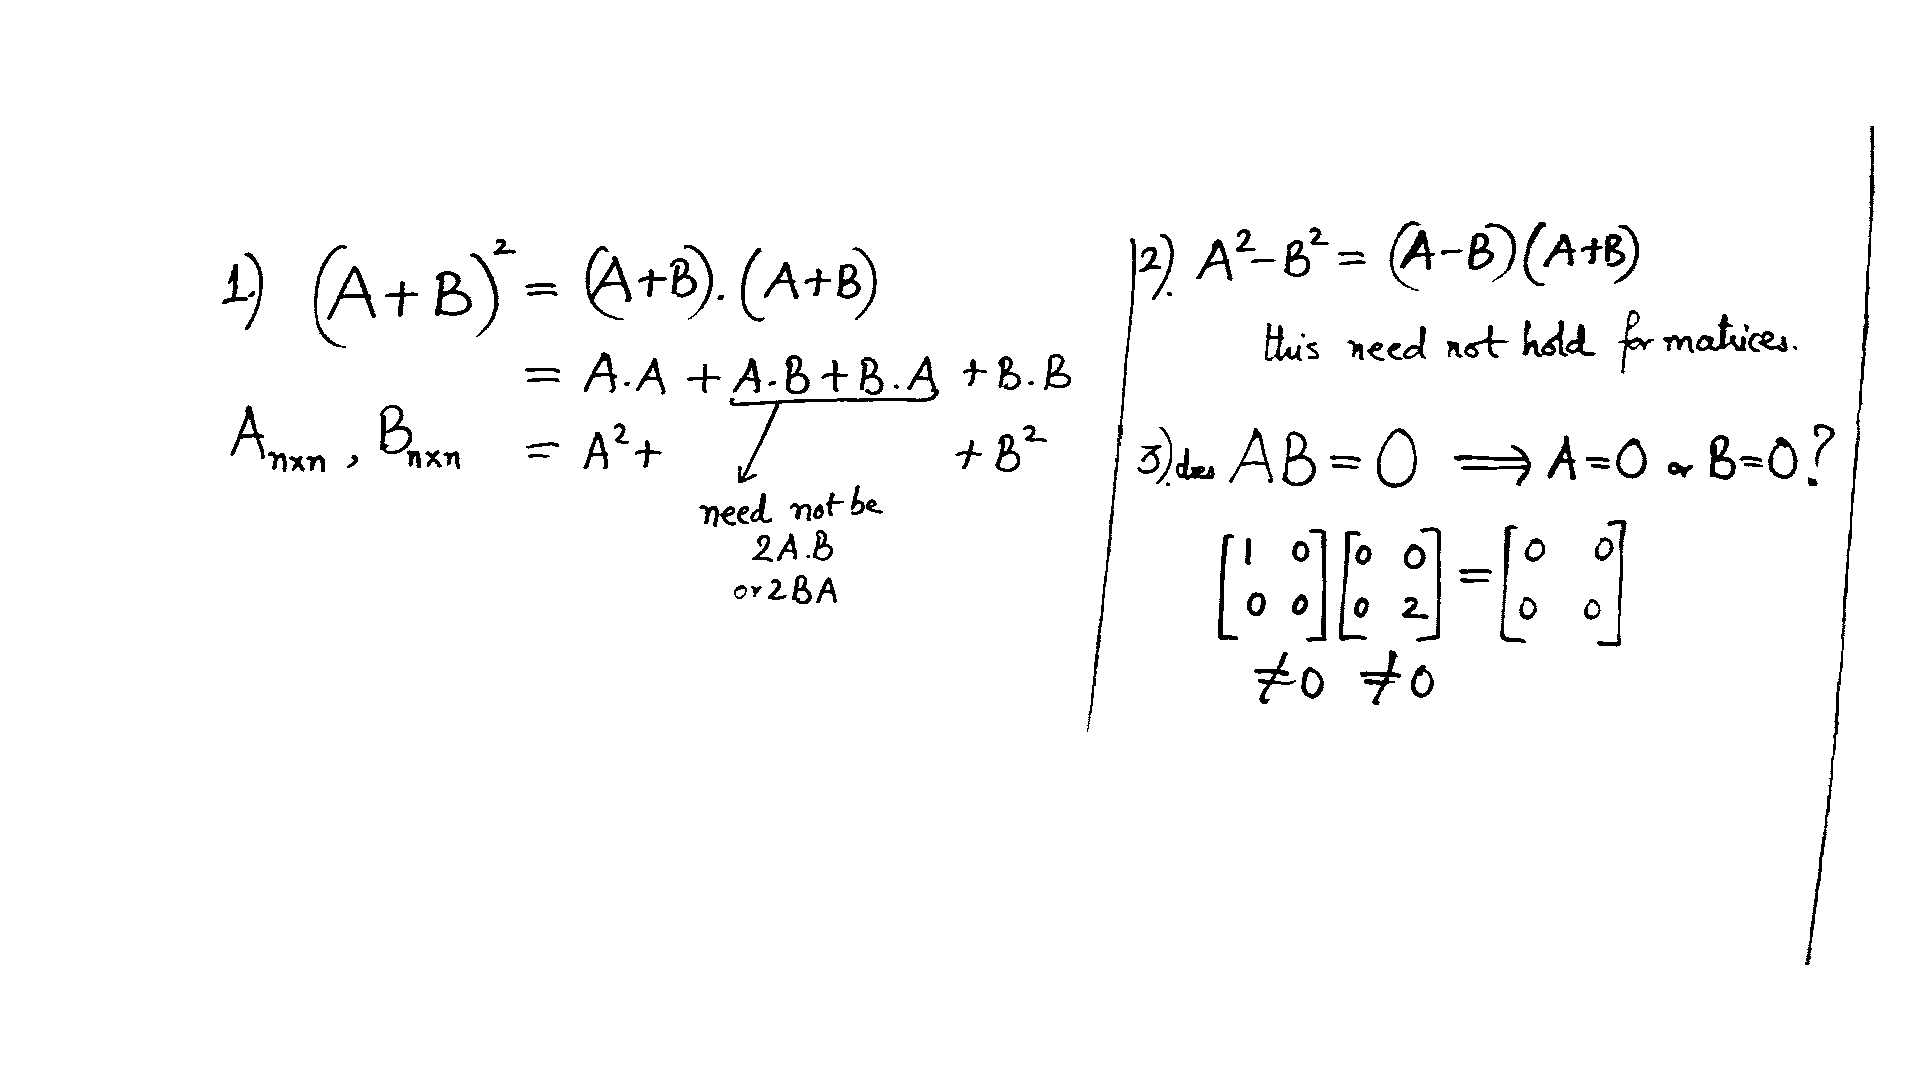 1) (A+B)² = (A+B).(A+B)
= A.A + A.B + B.A + B.B
Anxn, Bnxn = A² + + B²
need not be
2A.B
or 2BA
2). A²-B² = (A-B)(A+B)
this need not hold for matrices.
3). does AB = O ⟹ A=O or B=O?
[1 0] [0 0] = [0 0]
[0 0] [0 2] [0 0]
≠0 ≠0